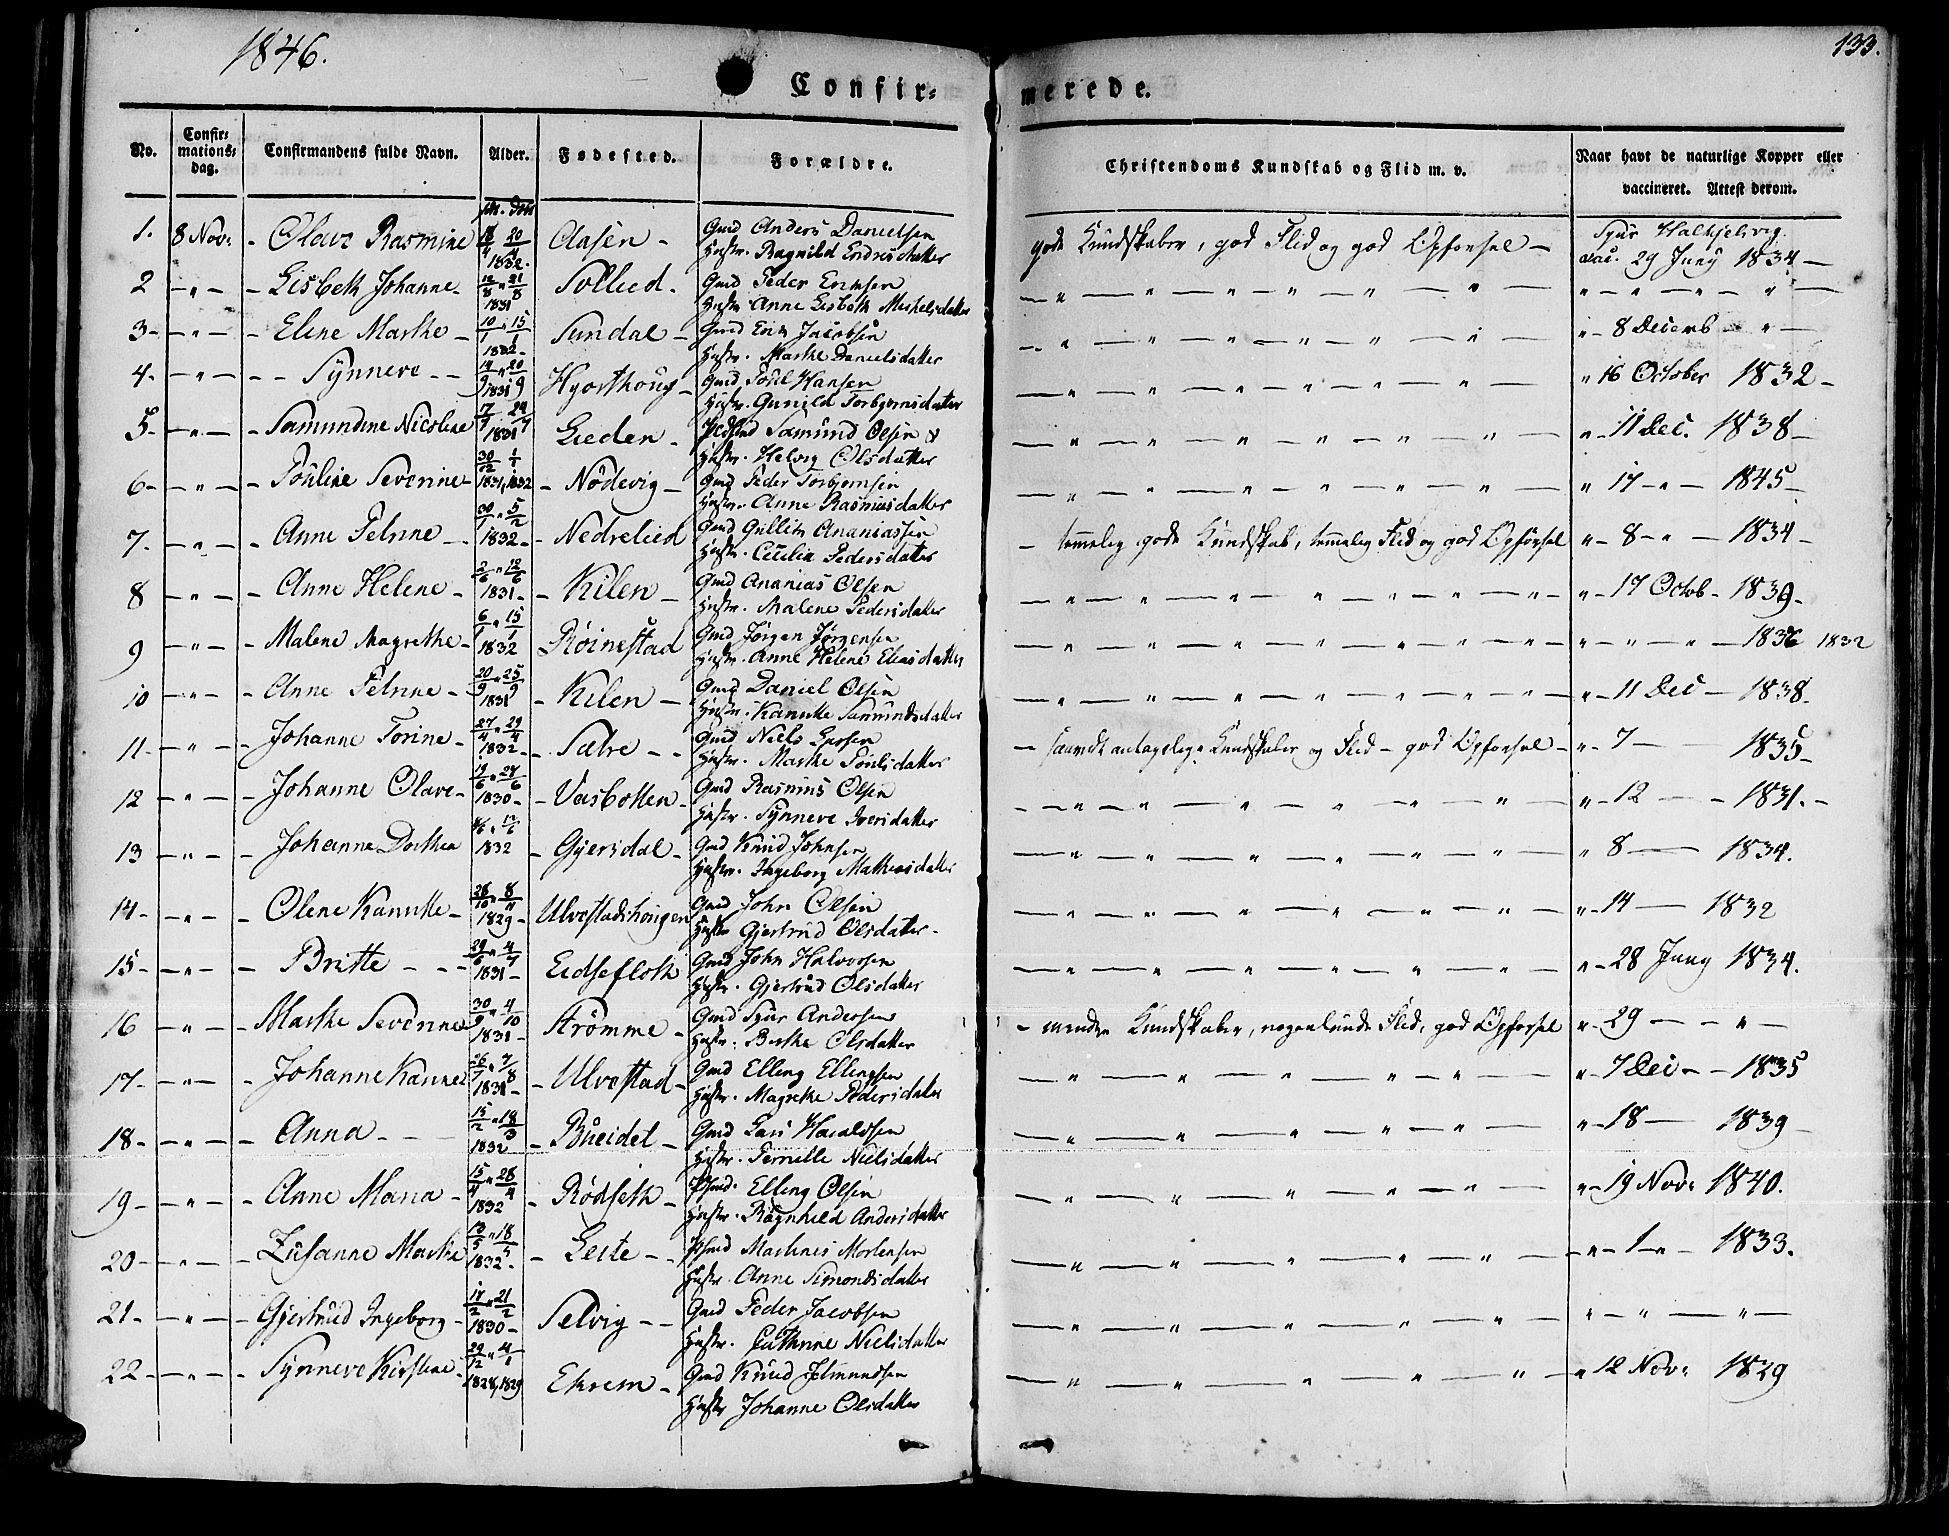 1846.
133.
Confir= merede.
No.
Confir= mations= dag.
Confirmandens fulde Navn.
Alder.
Fødested.
Forældre.
Christendoms Kundskab og Flid m. v.
Naar havt de naturlige Kopper eller vaccineret. Attest derom.
1. 8 Nov: - Olave Rasmine 20/4 1832. Aasen - Gmd Anders Danielsen
Hustr. Ragnild Endresdatter
gode Kundskaber, god Flid og god Opførsel - 29 Juny 1834 -
2 - " - - Lisbeth Johanne - 12/8 " 21/8 1831 Sollied - Gmd Peder Ericksen
Hustr. Anne Lisbeth Mickelsdatter
3 - " - - Elene Marthe - 10/1 " 15/1 1832 - Sundal - Gmd Erik Jacobsen
Hustr. Marthe Danielsdatter
" 8 Decemb - " -
4 - " - - - Synneve - - 14/9 " 20/9 1831 Hjorthoug - Gmd Poul Hansen
Hustr. Gunild Torbjørnsdatter
" 16 October 1832 -
5 - " - - Samundine Nicoline 7/7 24/7 1831 Lieden - Samund Olsen
Hustr. Helvig Olsdatter
" - 11 Dec. 1838 -
6 - " - - Pouline Severine - 30/12 1/1 1831, 1832 - Nödevig - Gmd Peder Torbjørnsen
Hustr. Anne Rasmusdatter
" 17 - " - 1845 -
7 - " - - Anne Petrine - 30/1 " 5/2 1832 - - Nedrelied Gmd Gullik Ananiassen
Hustr. Cecilia Pedersdatter
- temmelig gode Kundskab, temmelig Flid og god Opførsel " - 8 - " - 1834 -
8 - " - - Anne Helene - 2/6 " 12/6 1831 - - Kilen - Gmd Ananias Olsen
Hustr. Malene Pedersdatter
" - 17 Octob - 1839 -
9 - " - - Malene Magrethe - 6/1 " 15/1 1832 Röinestad Gmd Jørgen Jørgensen
Hustr. Anne Helene Eliasdatter
" - " - " - 1836 1832
10 - " - - Anne Petrine - 20/9 " 25/9 1831 - Kilen - Gmd Daniel Olsen
Hustr. Kanutte Samundsdatter
" - 11 Dec - 1838 -
11 - " - - Johanne Torine - 27/4 " 29/4 1832 - - Sætre - - Gmd Niels Larsen
Hustr. Marthe Poulsdatter
- saavidt antagelige Kundskaber og Flid - god Opførsel - " - 7 - 1835 -
12 - " - - Johanne Olave - 19/6 " 27/6 1830 - - Vasbotten - Gmd Rasmus Olsen
Hustr. Synneve Iversdatter
" - 12 - - 1831. -
13 - " - - Johanne Dorthea 1832 - Gjersdal - Gmd Knud Johnsen
Hustr. Ingeborg Mathiasdatter
" 8 - 1834.
14 - - " - - Olene Kanutte - 28/10 " 8/11 1829 - Ulvestadshougen Gmd John Olsen
Hustr Gjertrud Olsdatter -
" - 14 - 1832
15 - - " - - Britte - - - 29/6 " 4/7 1831 - Eidsefloth Gmd John Halvorsen
Hustr. Gjertrud Olsdatter
" - 28 Juny 1834.
16 - " - - Marthe Severine 30/9 " 4/10 1831 - Strömme - Gmd Sjur Andersen
Hustr. Berthe Olsdatter
- mindre Kundskaber, nogenlunde Flid, god Opførsel " - 29 - - " -
17 - - " - - Johanne Kanne 26/7 " 7/8 1831 - - Ulvestad - Gmd Elling Ellingsen
Hustr. Magrethe Pedersdatter
" - 7 Dec - - 1835
18 - - " - - Anna - - - 15/2 " 18/3 1832 - Bueidet - Gmd Lars Haraldsen
Hustr. Pernille Nielsdatter
" - 18 - 1839 -
19 - - " - - Anne Maria - 15/4 " 28/4 1832 - Rödseth - Elling Olsen
Hustr. Ragnhild Andersdatter
" - 19 Nov: 1840.
20 - - " - - Zusanne Marthe 13/5 " 18/5 1832 - - Leite - - Mathias Mortensen
Hustr. Anne Simondsdatter
- " - 1 - " - 1833.
21 - - " - - Gjertrud Ingeborg - 17/2 " 21/2 1830 - Selvig - - Gmd Peder Jacobsen
Hustr. Cathrine Nielsdatter
22 - - " - - Synneve Kirstine - 29/12 " 4/1 1828, 1829 Ekrem - Gmd Knud
Hustr Johanne Olsdatter
" 12 Nov: 1829